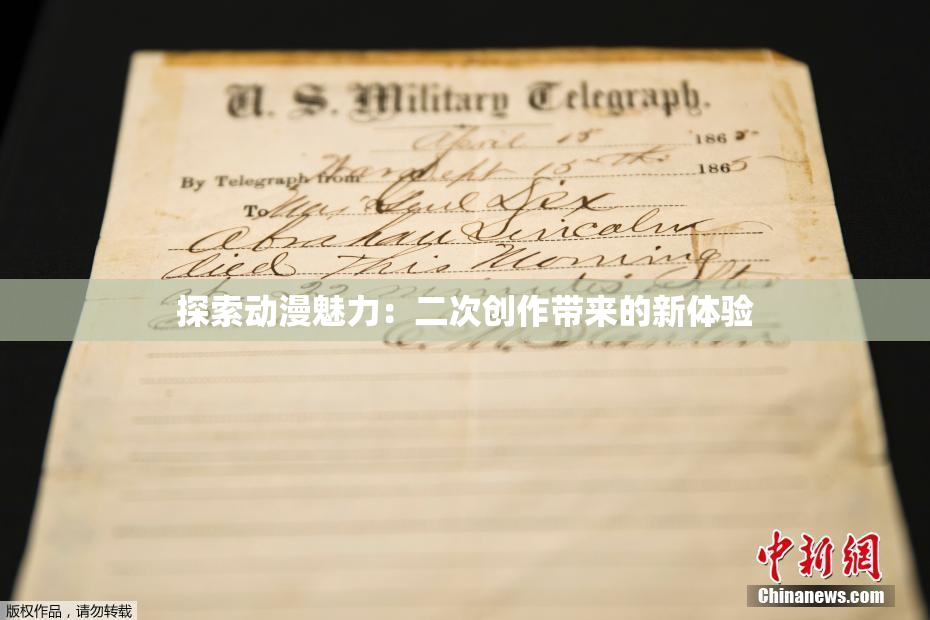 U. S. Military Telegraph.
April 15 1865
By Telegraph from War Dept 15th 1865
To Maj Genl Dix
Abraham Lincoln
died This Morning
at 22 minutes after
探索动漫魅力：二次创作带来的新体验
中新网
Chinanews.com
版权作品，请勿转载